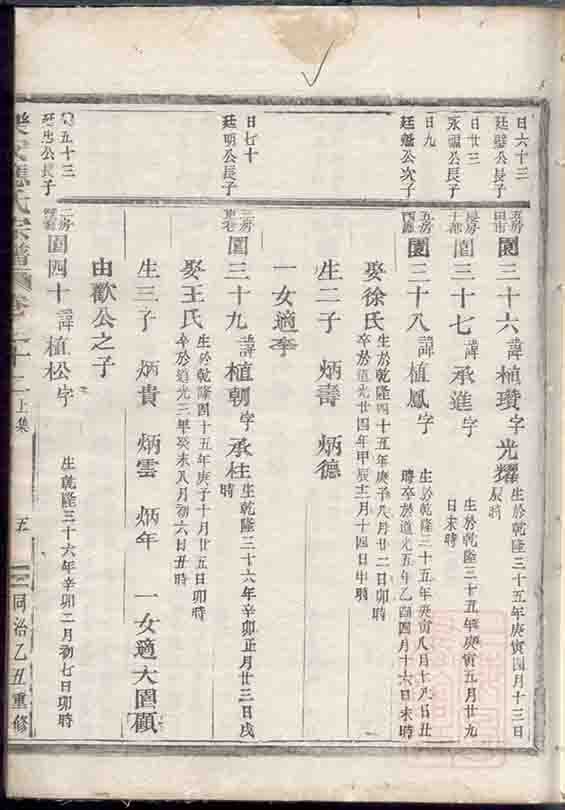 日六十三
廷璧公長子
五房
田市
園三十六諱植瓚字光耀
生於乾隆三十五年庚寅四月十三日
辰時
日廿三
永福公長子
園三十七諱承進字
生於乾隆三十五年庚寅五月廿九
日未時
日九
公次子
五房
園三十八諱植鳳字
生於乾隆三十五年庚寅八月十九日丑
時卒於道光五年乙酉四月十六日未時
娶徐氏
生於乾隆四十五年庚子八月廿二日卯時
卒於道光廿四年甲辰十二月十四日申時
生二子 炳壽 炳德
一女適李
日七十
廷明公長子
三房
園三十九諱植朝字承柱
生於乾隆三十六年辛卯正月廿三日戌
時
娶王氏
生於乾隆四十五年庚子十月廿五日卯時
卒於道光三年癸未八月初六日丑時
生三子 炳貴 炳雲 炳年 一女適大園顧
由歡公之子
五十三
廷忠公長子
二房
園四十諱植松字
生乾隆三十六年辛卯二月初七日卯時
應氏宗譜 卷之十二上集 五 同治乙丑重修